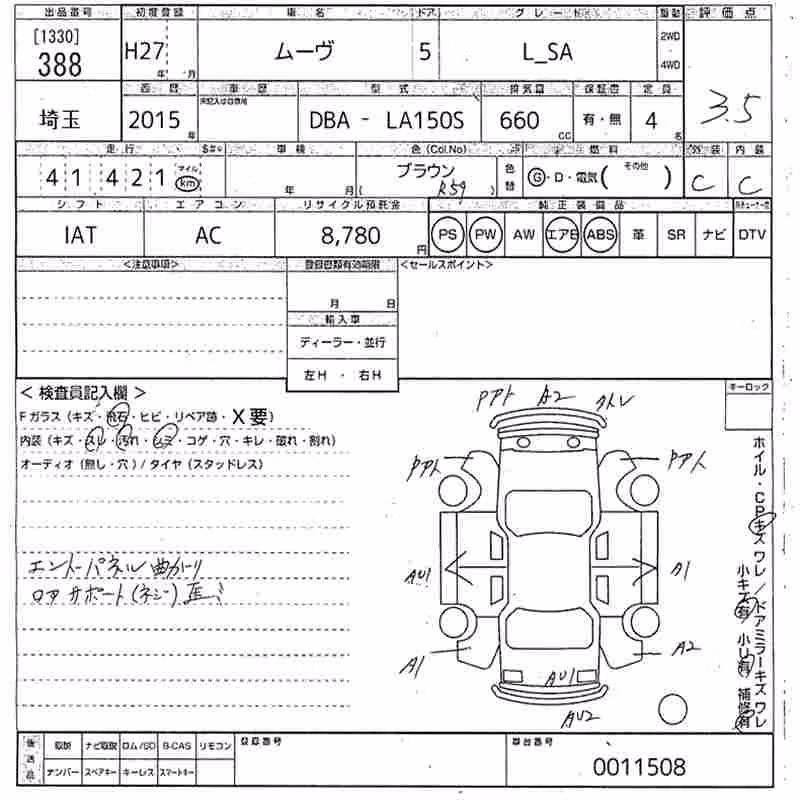 出品番号 初度登録 車名 ドア グレード 駆動 評価点
[1330]
388 H27 年 月 ムーヴ 5 L_SA 2WD 4WD 3.5
西暦 車歴 型式 排気量 保証書 定員
埼玉 2015 年 DBA - LA150S 660 CC 有・無 4 名
走行 車検 色(Col.No) 燃料 外装 内装
41 421 マイル km 年 月 ブラウン R59 色替 G・D・電気( その他 ) C C
シフト エアコン リサイクル預託金 純正装備品
IAT AC 8,780 円 PS PW AW エアB ABS 革 SR ナビ DTV
<注意事項> 登録書類有効期限 <セールスポイント>
月 日
輸入車
ディーラー・並行
左H ・ 右H
キーロック
<検査員記入欄>
Fガラス(キズ・飛石・ヒビ・リペア跡・X要)
内装(キズ・スレ・汚れ・シミ・コゲ・穴・キレ・破れ・割れ)
オーディオ(無し・穴)/タイヤ(スタッドレス)
エンドパネル曲がり
ロアサポート(ネジ)歪ミ
PPト A2 クトレ
PPト PPト
AU1 A1
A1 A2
AU1
AU2
ホイル・CPキズワレ/ドアミラーキズワレ
小キズ有 小U有 補修有
後送品 取説 ナビ取説 ロム/SD B-CAS リモコン 登録番号 車台番号
ナンバー スペアキー キーレス スマートキー 0011508